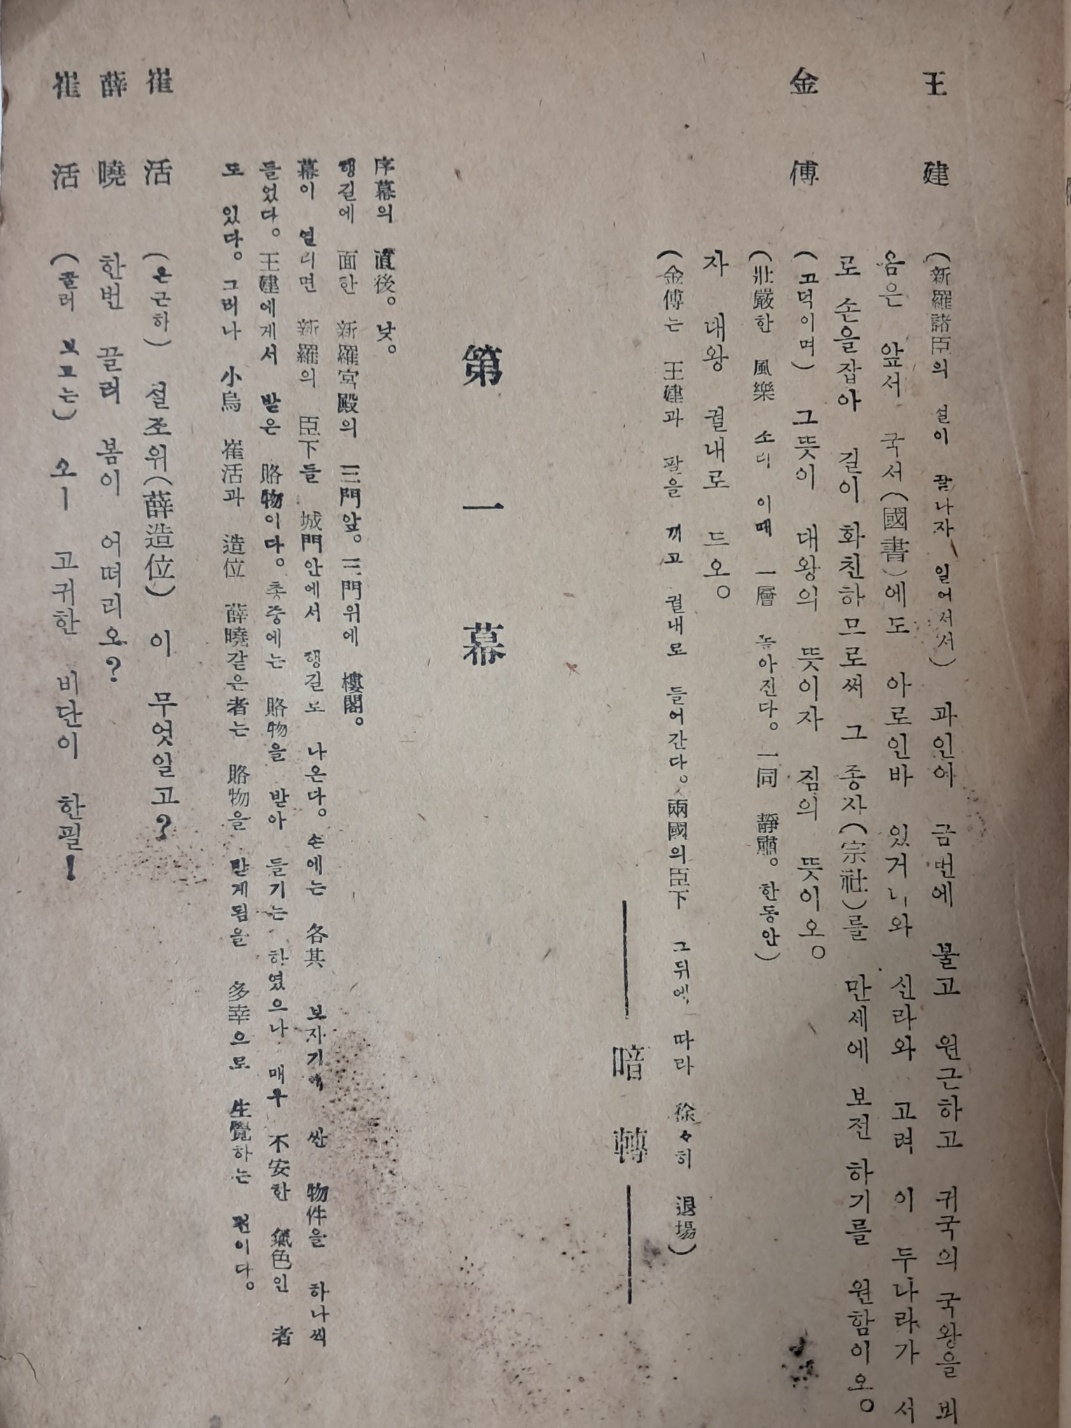 王建 (新羅諸臣의 설이 끝나자 일어서서) 과인이 금번에 불고 원근하고 귀국의 국왕을 뵈
옴은 앞서 국서(國書)에도 아로인바 있거니와 신라와 고려 이 두나라가 서
로 손을잡아 길이 화친하므로써 그 종사(宗社)를 만세에 보전 하기를 원함이오。
金傅 (끄덕이며) 그뜻이 대왕의 뜻이자 짐의 뜻이오。
(壯嚴한 風樂 소리 이때 一層 높아진다。一同 靜肅。한동안)
자 대왕 궐내로 드오。
(金傅는 王建과 팔을 끼고 궐내로 들어간다。兩國의臣下 그뒤에 따라 徐々히 退場)
——暗轉——
第一幕
序幕의 直後。낮。
행길에 面한 新羅宮殿의 三門앞。三門위에 樓閣。
幕이 열리면 新羅의 臣下들 城門안에서 행길로 나온다。손에는 各其 보자기에 싼 物件을 하나씩
들었다。王建에게서 받은 賂物이다。촛중에는 賂物을 받아 들기는 하였으나 매우 不安한 氣色인 者
도 있다。그러나 小烏 崔活과 造位 薛曉같은者는 賂物을 받게됨을 多幸으로 生覺하는 편이다。
崔活 (은근히) 설조위(薛造位) 이 무엇일고?
薛曉 한번 끌러 봄이 어떠리오?
崔活 (끌러 보고는) 오ㅣ 고귀한 비단이 한필!